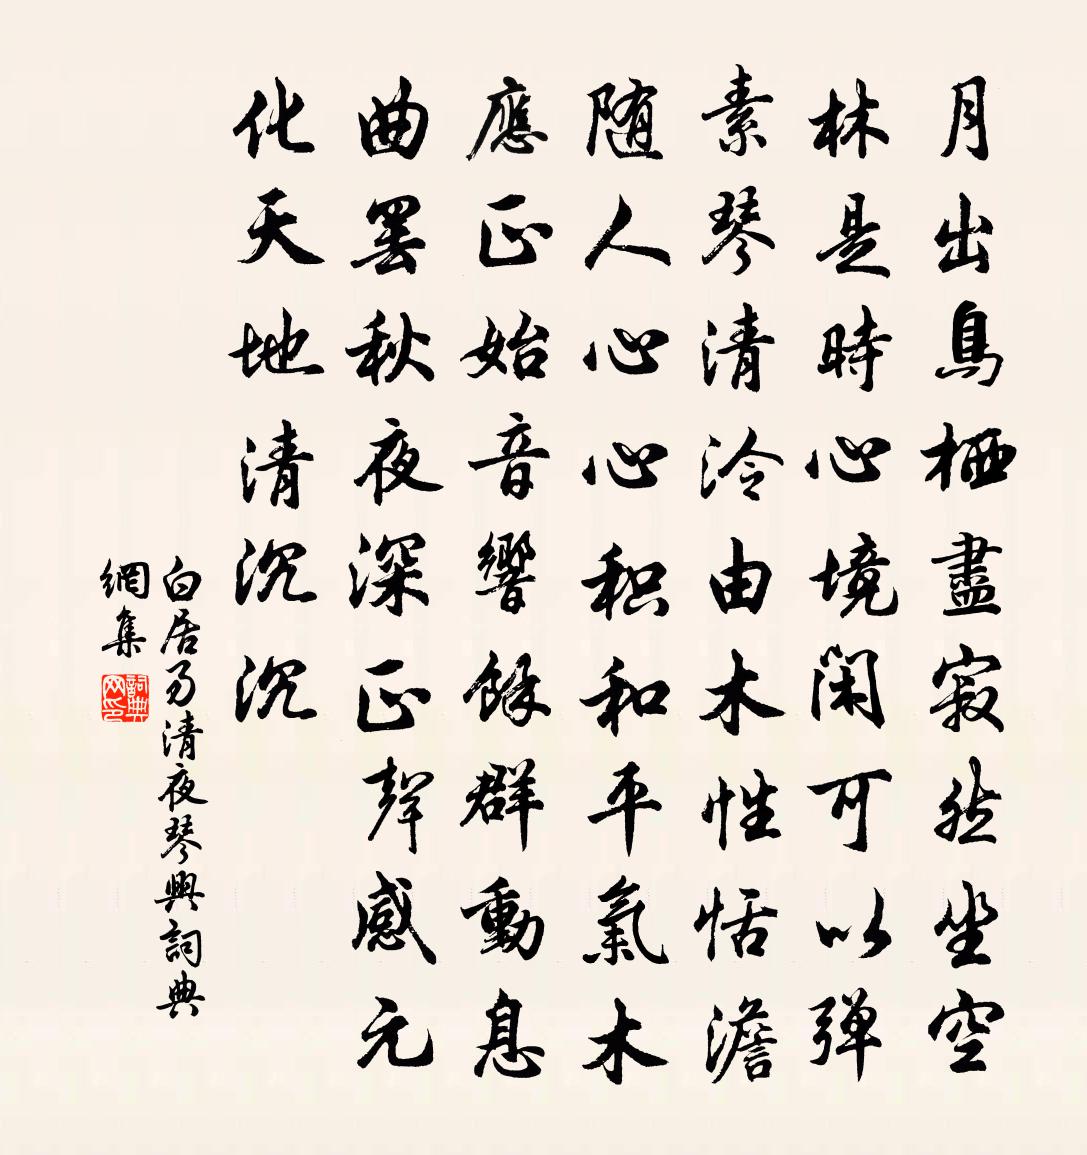 月出鳥栖盡寂然坐空
林是時心境閑可以弹
素琴清泠由木性恬澹
随人心心积和平氣木
應正始音響餘群動息
曲罢秋夜深正聲感元
化天地清沉沉
白居易清夜琴興詞典
網集